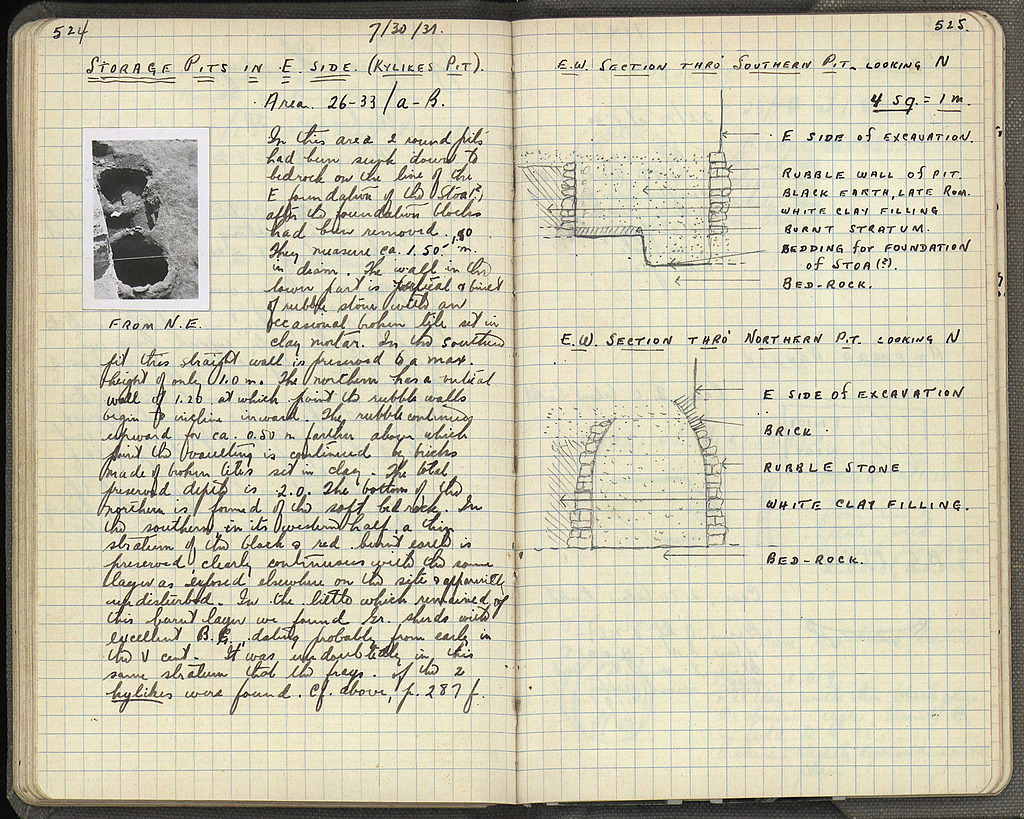 524
7/30/31.
STORAGE PITS IN E. SIDE. (KYLIKES PIT).
Area. 26-33/a-B.
In this area 2 round pits
had been sunk down to
bedrock on the line of the
E foundation of the Stoa(?)
after the foundation blocks
had been removed.
They measure ca. 1.50-1.80 m
in diam. The wall in the
lower part is vertical & built
of rubble stone with an
occasional broken tile set in
clay mortar. In the southern
FROM N.E.
pit this straight wall is preserved to a max.
height of only 1.0 m. The northern has a vertical
wall of 1.20 at which point the rubble walls
begin to incline inward. The rubble continues
upward for ca. 0.50 m farther above which
point the vaulting is continued by bricks
made of broken tiles set in clay. The total
preserved depth is 2.0. The bottom of the
northern is formed of the soft bedrock. In
the southern, in its western half, a thin
stratum of the black & red burnt earth is
preserved clearly continuous with the same
layer as exposed elsewhere on the site & apparently
undisturbed. In the little which remained of
this burnt layer we found Gr. sherds with
excellent B.G. dating probably from early in
the V cent. It was undoubtedly in this
same stratum that the frags. of the 2
kylikes were found. Cf. above, p. 287 f.
525.
E.W. SECTION THRO' SOUTHERN PIT. LOOKING N
4 SQ. = 1 M.
E SIDE OF EXCAVATION.
RUBBLE WALL OF PIT.
BLACK EARTH, LATE ROM.
WHITE CLAY FILLING
BURNT STRATUM.
BEDDING for FOUNDATION
OF STOA(?).
BED-ROCK.
E.W. SECTION THRO' NORTHERN PIT. LOOKING N
E SIDE OF EXCAVATION
BRICK.
RUBBLE STONE
WHITE CLAY FILLING.
BED-ROCK.